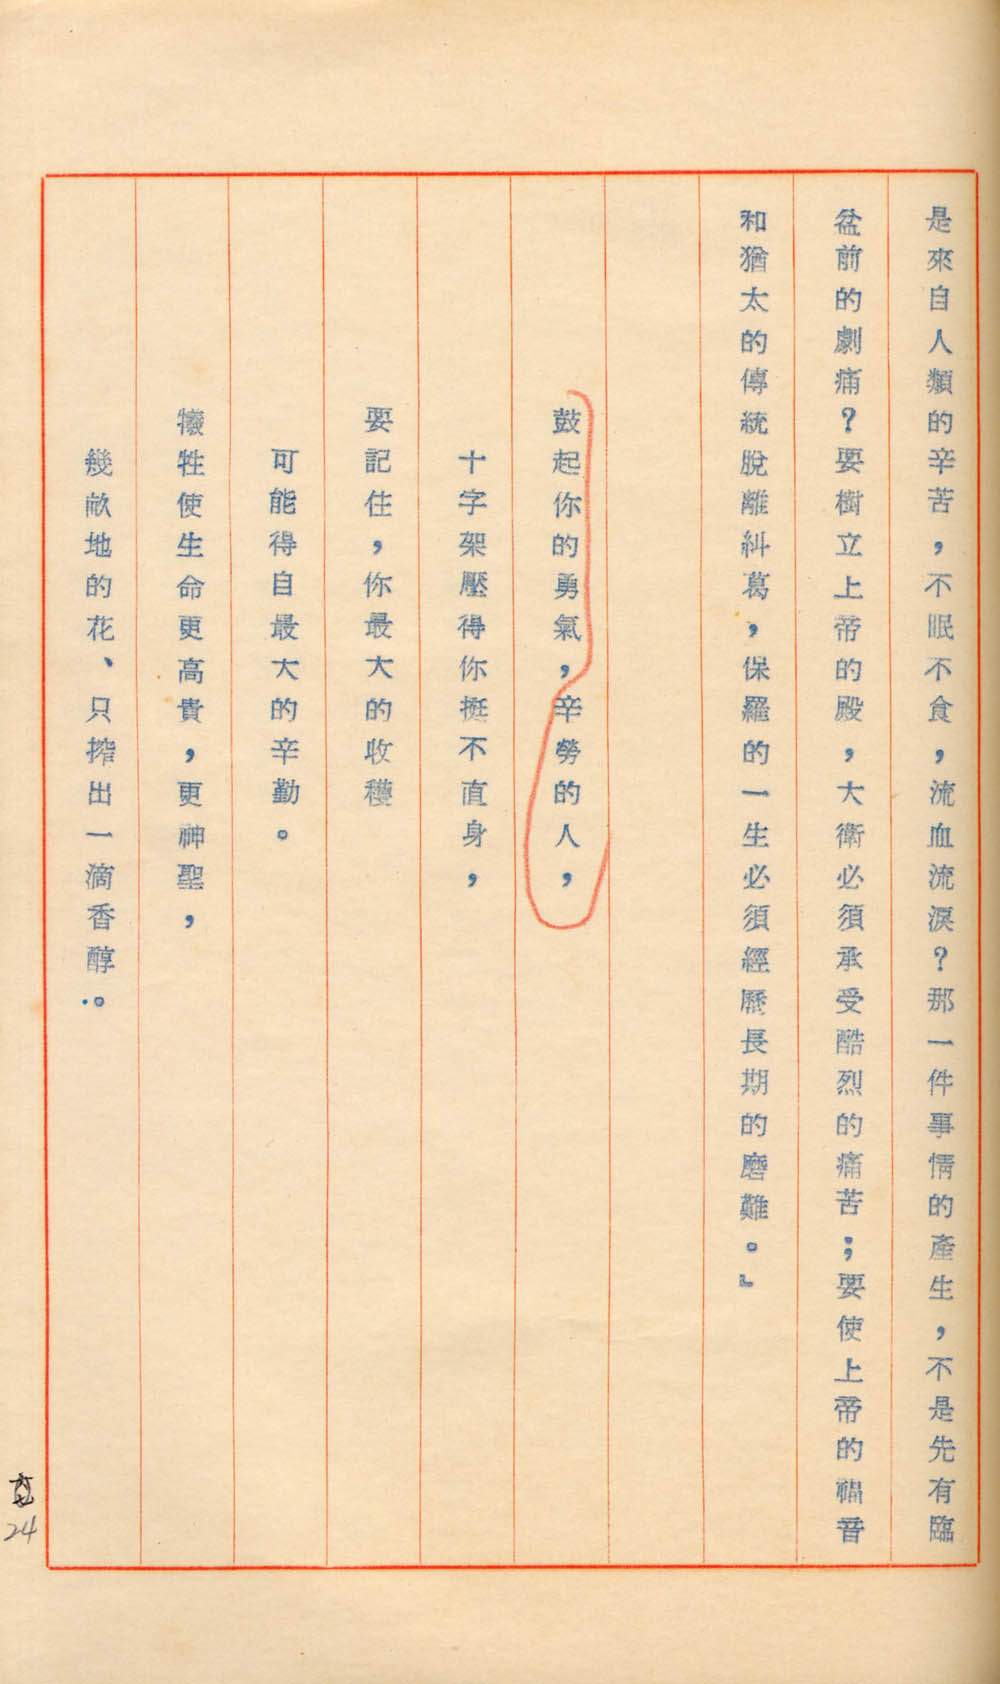 是來自人類的辛苦，不眠不食，流血流淚？那一件事情的產生，不是先有臨
盆前的劇痛？要樹立上帝的殿，大衛必須承受酷烈的痛苦；要使上帝的福音
和猶太的傳統脫離糾葛，保羅的一生必須經歷長期的磨難。』
鼓起你的勇氣，辛勞的人，
十字架壓得你挺不直身，
要記住，你最大的收穫
可能得自最大的辛勤。
犧牲使生命更高貴，更神聖，
幾畝地的花、只搾出一滴香醇。
24